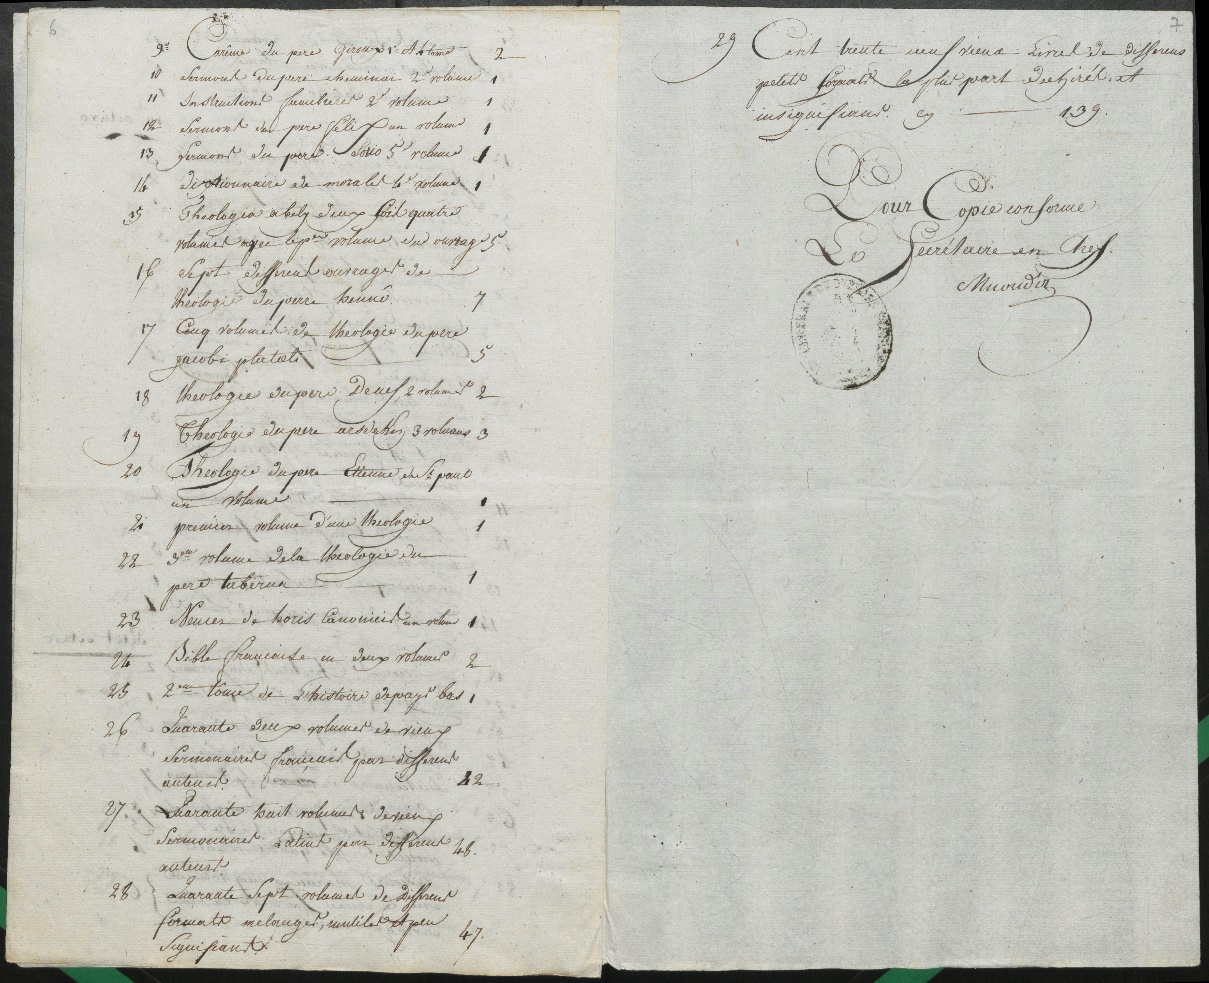 6
9° Carême du pere Giroux 1er & 4 tome 2
10 Sermons du pere cheminai 2d volume 1
11 Instructions funebres 2d volume 1
12 Sermons du pere félix un volume 1
13 Sermons du pere 5e volume 1
14 dictionnaire de morales 1er volume 1
15 Theologia abely deux fois quatre
volumes avec le per volume du ouvrage 5
16 Sept differens ouvrages de
theologie du perre henno 7
17 Cinq volumes de theologie du pere
jacobi platel 5
18 theologie du pere Dens, 2 volumes 2
19 Theologie du pere arsdekin 3 volumes 3
20 Theologie du pere Etienne de St paul
un volume 1
21 premier volume d'une theologie 1
22 3eme volume de la theologie du
pere taberna 1
23 de horis Canonicis un volum 1
24 Bible francoise en deux volumes 2
25 2eme tome de L'histoire de pays bas 1
26 Quarante deux volumes de vieux
Sermonaires français par differens
auteurs. 42
27. Quarante huit volumes de vieux
Sermonaires Latins par differens 48.
auteurs
28 Quarante Sept volumes de differens
formats melanges, inutiles et peu 47.
Signifiants.
7
29 Cent trente neuf vieux Livres de differens
petits formats, la plus part dechirés et
insignifians. cy 139.
Pour Copie conforme
Le Secrétaire en Chef.